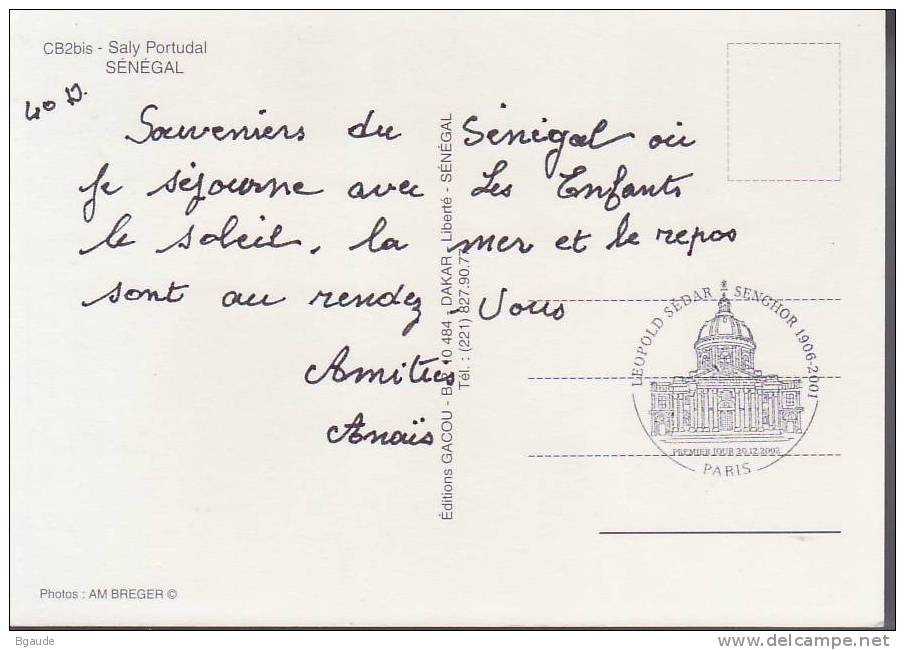 CB2bis - Saly Portudal
SÉNÉGAL
40 D.
Souveniers du Sénégal où
Je séjourne avec Les Enfants
le soleil, la mer et le repos
sont au rendez-Vous
Amitiés
Anaïs
Éditions GACOU - B.P. 10 484 - DAKAR - Liberté - SÉNÉGAL
Tél. : (221) 827.90.7
LEOPOLD SÉDAR SENGHOR 1906-2001
PREMIER JOUR 20.12.2002
PARIS
Photos : AM BREGER ©
Bgaude
delcampe.net